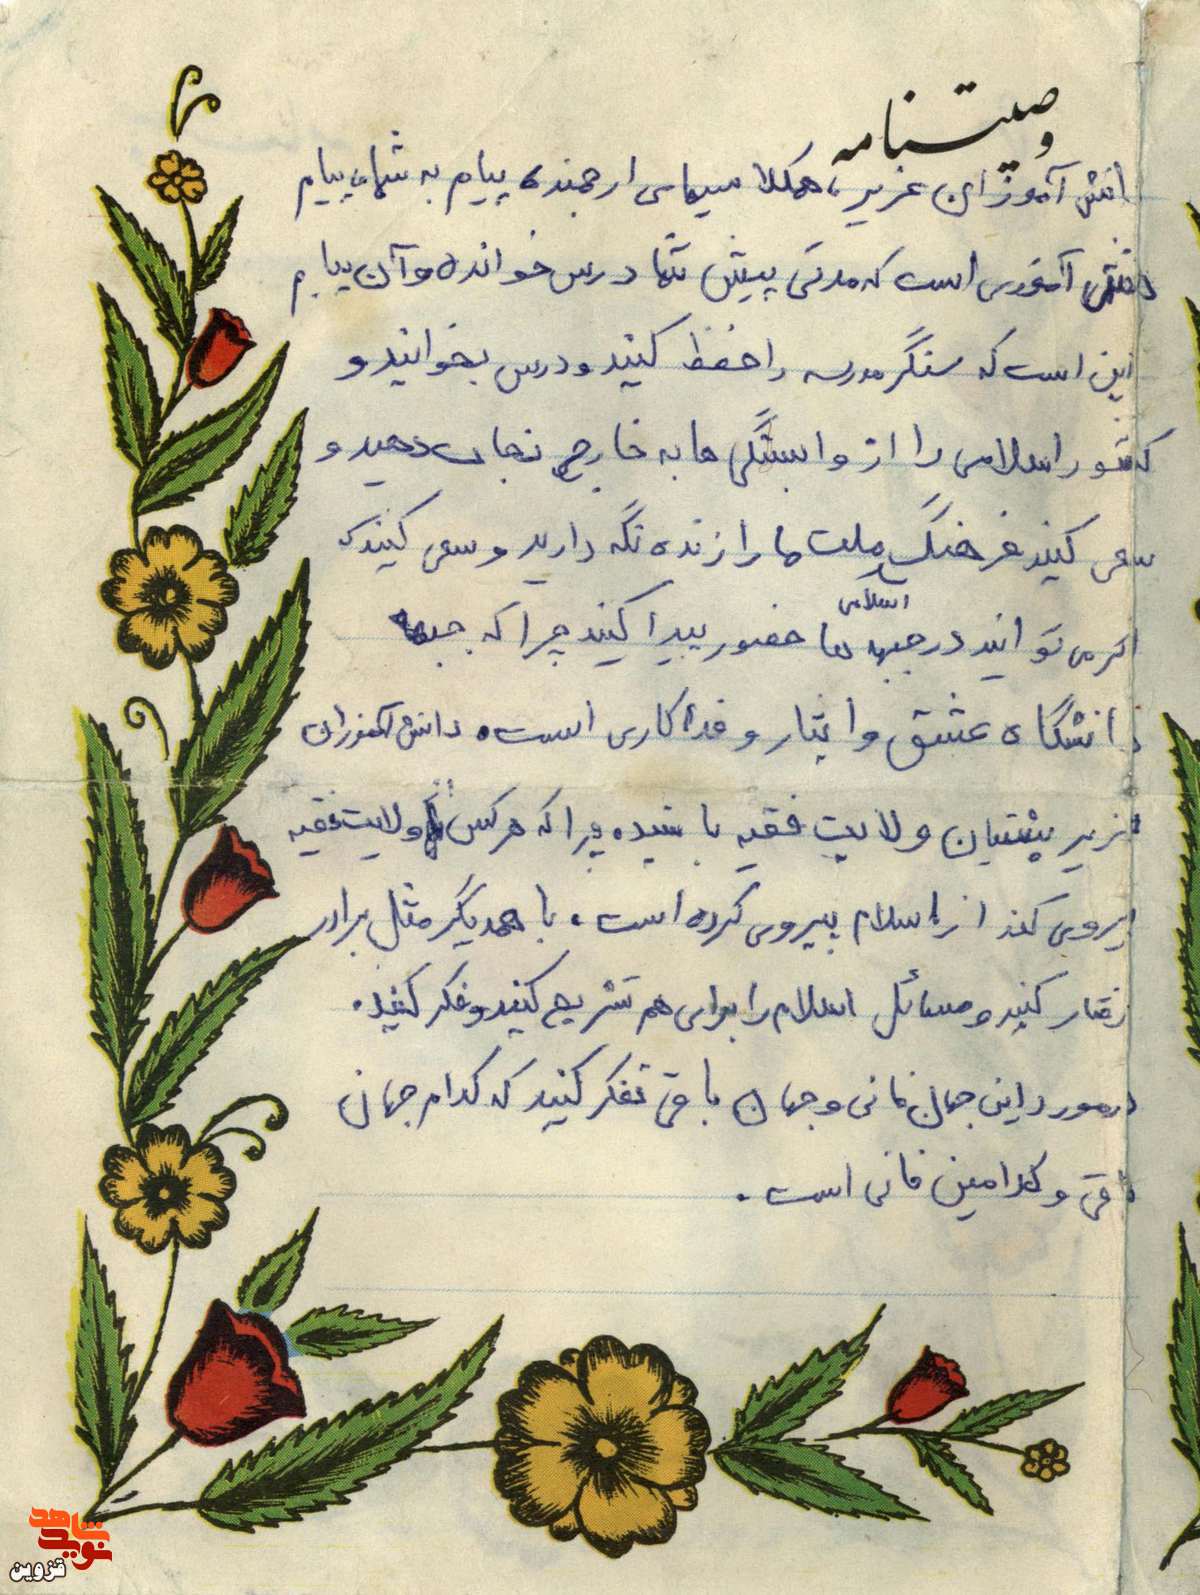 وصیتنامه
انش آموزان عزیز، همکلاسیهای ارجمند، پیام به شما، پیام
دانش آموزی است که مدتی پیش شما درس خوانده و آن پیام
این است که سنگر مدرسه را حفظ کنید و درس بخوانید و
کشور اسلامی را از وابستگی ها به خارج نجات دهید و
سعی کنید فرهنگ ملت ما را زنده نگه دارید و سعی کنید که
اسلامی
اگر می توانید در جبهه ها حضور پیدا کنید چرا که جبهه
دانشگاه عشق و ایثار و فداکاری است. دانش آموزان
عزیز پشتیبان ولایت فقیه باشید، چرا که هر کس از ولایت فقیه
پیروی کند از اسلام پیروی کرده است. با همدیگر مثل برادر
رفتار کنید و مسائل اسلام را برای هم تشریح کنید و فکر کنید.
درمورد این جهان فانی و جهان باقی تفکر کنید که کدام جهان
باقی و کدامین فانی است.
نوید شاهد
قزوین